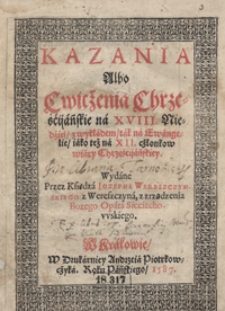 KAZANIA
Albo
Cwiczenia Chrze-
ściyáńskie ná XVIII. Nie-
dziel/ z wykłádem/ ták ná Ewánge-
lie/ iáko też ná XII. członkow
wiáry Chrześciyáńskiey.
Wydáne
Przez Kśiędzá IOZEPHA WERESZCZYN-
SKIEGO z Wereszczyná, z zrządzenia
Bożego Opátá Sieciecho-
vvskiego.
W Krákowie/
W Drukárniey Andrzeiá Piotrkow-
cżyká. Roku Páńskiego/ 1587.
18317